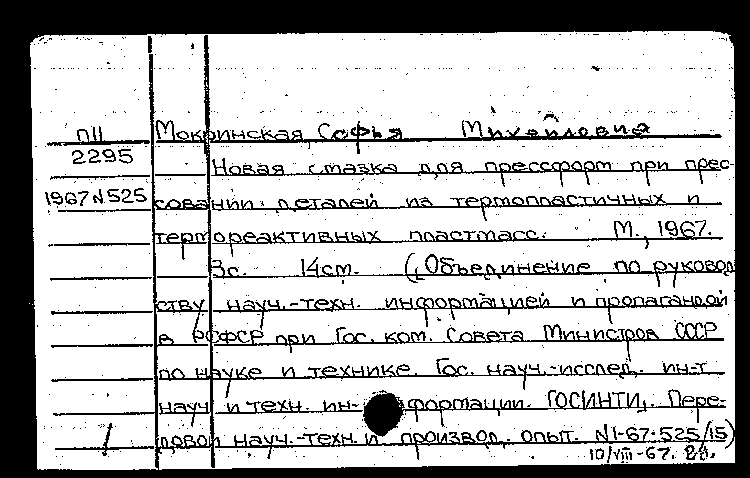 П11 Мокринская, Софья Михайловна
2295 Новая смазка для прессформ при прес-
1967 N 525 совании деталей из термопластичных и
термореактивных пластмасс. М., 1967.
3с. 14см. (Объединение по руковод
ству науч.-техн. информацией и пропагандой
в РСФСР при Гос. ком. Совета Министров СССР
по науке и технике. Гос. науч.-исслед. ин-т
науч. и техн. информации. ГОСИНТИ. Пере-
довой науч.-техн. и производ. опыт. N1-67-525/15)
10/VIII-67.